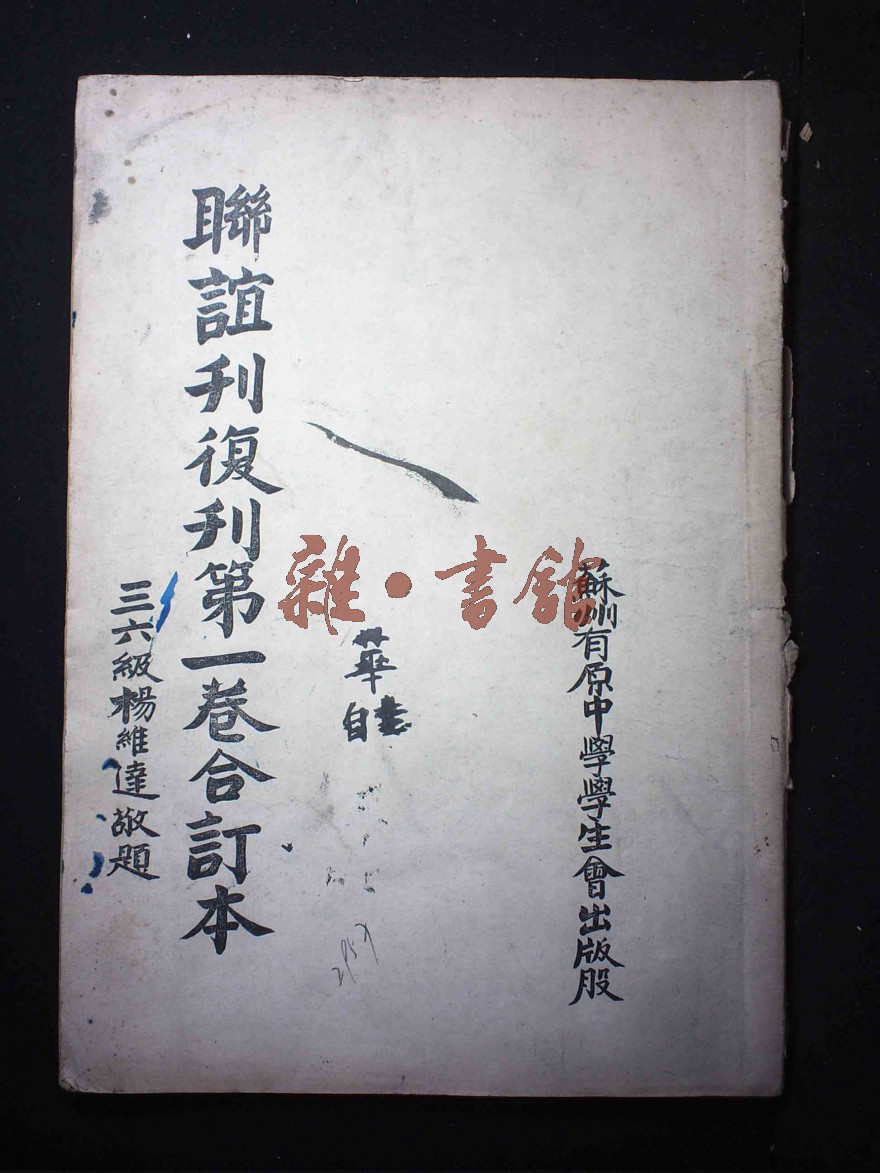 蘇州有原中學學生會出版股
雜·書館
華
聯誼刊復刊第一卷合訂本
三六級楊維達敬題